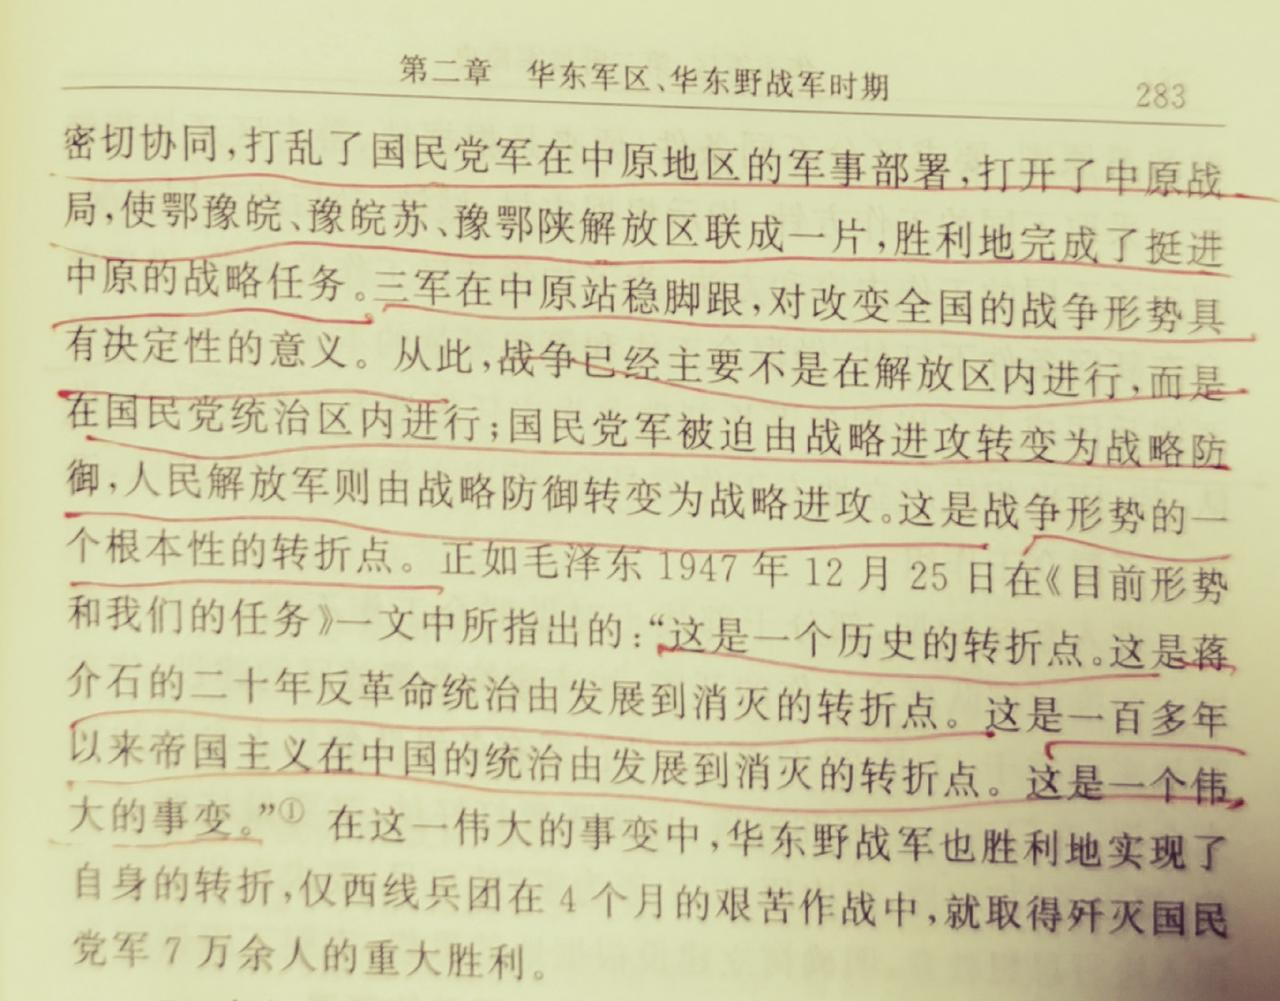 第二章 华东军区、华东野战军时期
283
密切协同,打乱了国民党军在中原地区的军事部署,打开了中原战
局,使鄂豫皖、豫皖苏、豫鄂陕解放区联成一片,胜利地完成了挺进
中原的战略任务。三军在中原站稳脚跟,对改变全国的战争形势具
有决定性的意义。从此,战争已经主要不是在解放区内进行,而是
在国民党统治区内进行;国民党军被迫由战略进攻转变为战略防
御,人民解放军则由战略防御转变为战略进攻。这是战争形势的一
个根本性的转折点。正如毛泽东 1947 年 12 月 25 日在《目前形势
和我们的任务》一文中所指出的:“这是一个历史的转折点。这是蒋
介石的二十年反革命统治由发展到消灭的转折点。这是一百多年
以来帝国主义在中国的统治由发展到消灭的转折点。这是一个伟
大的事变。”① 在这一伟大的事变中,华东野战军也胜利地实现了
自身的转折,仅西线兵团在 4 个月的艰苦作战中,就取得歼灭国民
党军 7 万余人的重大胜利。